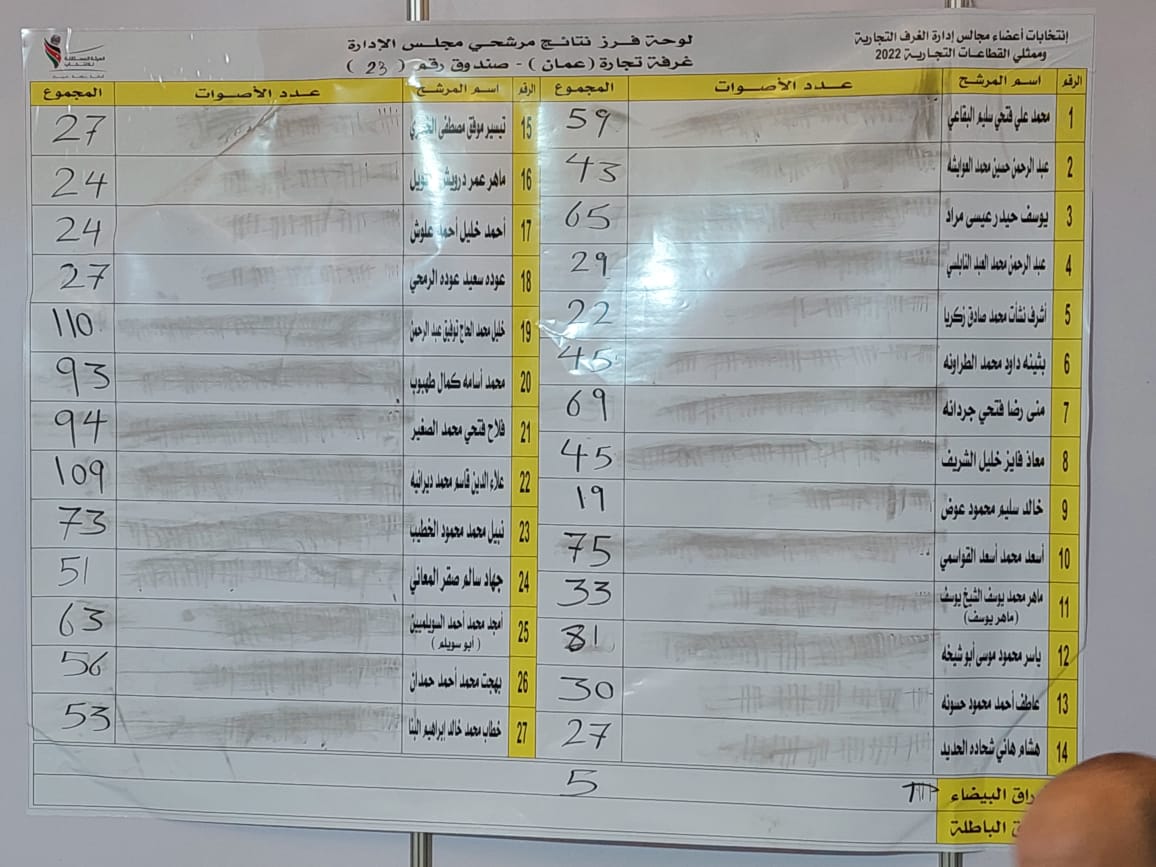 إنتخابات أعضاء مجالس إدارة الغرف التجارية
وممثلي القطاعات التجارية 2022
لوحة فرز نتائج مرشحي مجلس الإدارة
غرفة تجارة (عمان) - صندوق رقم ( 23 )
الرقم اسم المرشح عدد الأصوات المجموع
1 محمد علي فتحي سليم البقاعي 59
2 عبد الرحمن حسين محمد العوايشه 43
3 يوسف حيدر عيسى مراد 65
4 عبد الرحمن محمد العبد النابلسي 29
5 أشرف نشأت محمد صادق زكريا 22
6 بثينه داود محمد الطراونه 45
7 منى رضا فتحي جردانه 69
8 معاذ فايز خليل الشريف 45
9 خالد سليم محمود عوض 19
10 أسعد محمد أسعد القواسمي 75
11 ماهر محمد يوسف الشيخ يوسف 33
(ماهر يوسف)
12 ياسر محمود موسى أبو شيخه 81
13 عاطف أحمد محمود حسونه 30
14 هشام هاني شحاده الحديد 27
الرقم اسم المرشح عدد الأصوات المجموع
15 تيسير موفق مصطفى 27
16 ماهر عمر درويش 24
17 أحمد خليل أحمد علوش 24
18 عوده سعيد عوده الرمحي 27
19 خليل محمد الحاج توفيق عبد الرحمن 110
20 محمد أسامه كمال طهبوب 93
21 فلاح فتحي محمد الصغير 94
22 علاء الدين قاسم محمد ديرانيه 109
23 نبيل محمد محمود الخطيب 73
24 جهاد سالم صقر المعاني 51
25 أمجد محمد أحمد السويلميين 63
(أبو سويلم)
26 بهجت محمد أحمد حمدان 56
27 خطاب محمد خالد إبراهيم البنا 53
البيضاء 5
الباطلة